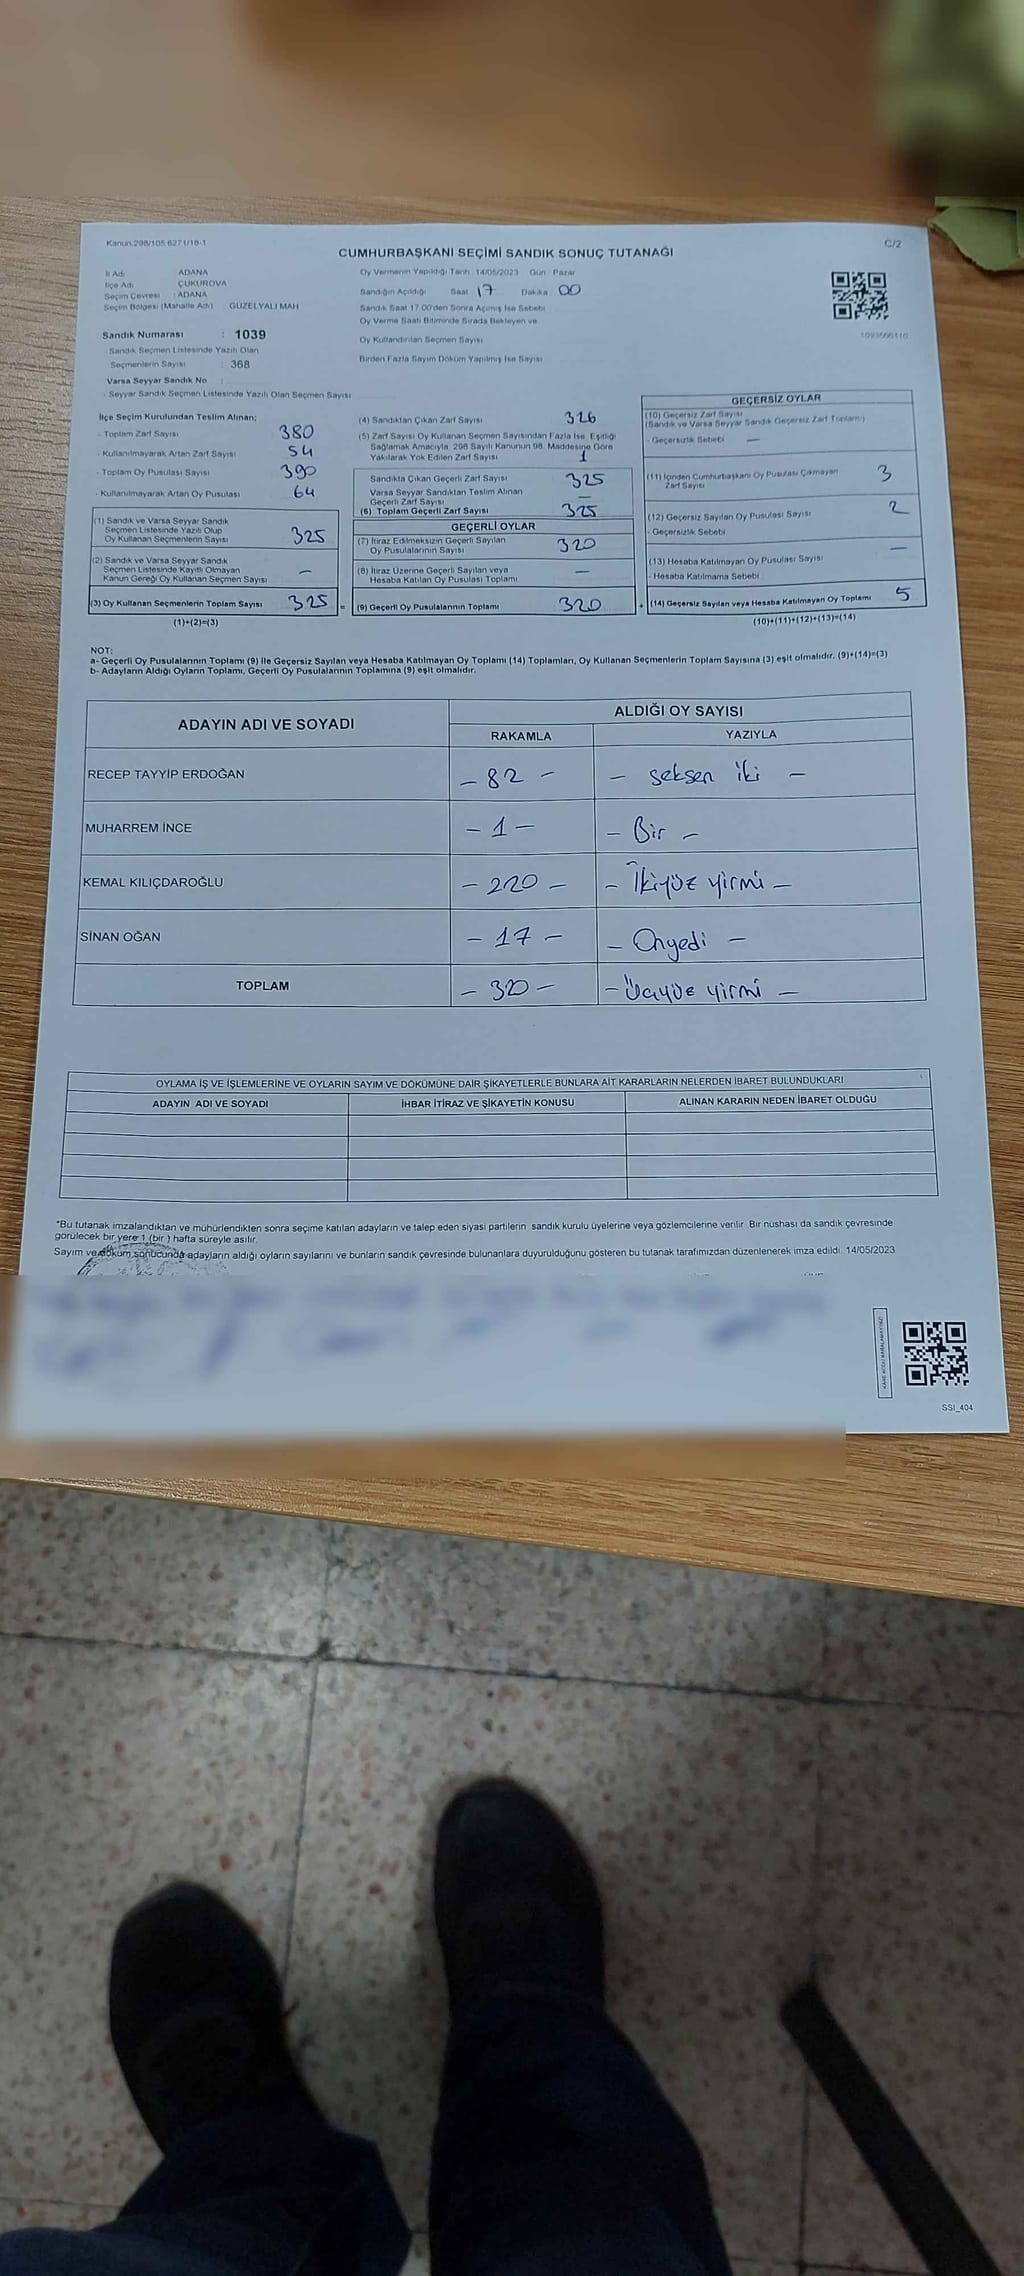 Kanun.298/105.6271/18-1
C/2
CUMHURBAŞKANI SEÇİMİ SANDIK SONUÇ TUTANAĞI
İl Adı ADANA
İlçe Adı ÇUKUROVA
Seçim Çevresi : ADANA
Seçim Bölgesi (Mahalle Adı) GÜZELYALI MAH
Sandık Numarası : 1039
- Sandık Seçmen Listesinde Yazılı Olan
Seçmenlerin Sayısı : 368
Varsa Seyyar Sandık No
- Seyyar Sandık Seçmen Listesinde Yazılı Olan Seçmen Sayısı
Oy Vermenin Yapıldığı Tarih : 14/05/2023 Gün : Pazar
Sandığın Açıldığı Saat 17 Dakika 00
Sandık Saat 17.00'den Sonra Açılmış İse Sebebi
Oy Verme Saati Bitiminde Sırada Bekleyen ve
Oy Kullandırılan Seçmen Sayısı
Birden Fazla Sayım Döküm Yapılmış İse Sayısı
İlçe Seçim Kurulundan Teslim Alınan;
- Toplam Zarf Sayısı 380
- Kullanılmayarak Artan Zarf Sayısı 54
- Toplam Oy Pusulası Sayısı 390
- Kullanılmayarak Artan Oy Pusulası 64
(1) Sandık ve Varsa Seyyar Sandık
Seçmen Listesinde Yazılı Olup
Oy Kullanan Seçmenlerin Sayısı 325
(2) Sandık ve Varsa Seyyar Sandık
Seçmen Listesinde Kayıtlı Olmayan
Kanun Gereği Oy Kullanan Seçmen Sayısı –
(3) Oy Kullanan Seçmenlerin Toplam Sayısı 325 =
(1)+(2)=(3)
(4) Sandıktan Çıkan Zarf Sayısı 326
(5) Zarf Sayısı Oy Kullanan Seçmen Sayısından Fazla İse, Eşitliği
Sağlamak Amacıyla, 298 Sayılı Kanunun 98. Maddesine Göre
Yakılarak Yok Edilen Zarf Sayısı 1
Sandıkta Çıkan Geçerli Zarf Sayısı 325
Varsa Seyyar Sandıktan Teslim Alınan
Geçerli Zarf Sayısı –
(6) Toplam Geçerli Zarf Sayısı 325
GEÇERLİ OYLAR
(7) İtiraz Edilmeksizin Geçerli Sayılan
Oy Pusulalarının Sayısı 320
(8) İtiraz Üzerine Geçerli Sayılan veya
Hesaba Katılan Oy Pusulası Toplamı –
(9) Geçerli Oy Pusulalarının Toplamı 320 +
GEÇERSİZ OYLAR
(10) Geçersiz Zarf Sayısı
(Sandık ve Varsa Seyyar Sandık Geçersiz Zarf Toplamı)
- Geçersizlik Sebebi –
(11) İçinden Cumhurbaşkanı Oy Pusulası Çıkmayan
Zarf Sayısı 3
(12) Geçersiz Sayılan Oy Pusulası Sayısı 2
- Geçersizlik Sebebi
(13) Hesaba Katılmayan Oy Pusulası Sayısı –
- Hesaba Katılmama Sebebi
(14) Geçersiz Sayılan veya Hesaba Katılmayan Oy Toplamı 5
(10)+(11)+(12)+(13)=(14)
NOT:
a- Geçerli Oy Pusulalarının Toplamı (9) ile Geçersiz Sayılan veya Hesaba Katılmayan Oy Toplamı (14) Toplamları, Oy Kullanan Seçmenlerin Toplam Sayısına (3) eşit olmalıdır. (9)+(14)=(3)
b- Adayların Aldığı Oyların Toplamı, Geçerli Oy Pusulalarının Toplamına (9) eşit olmalıdır.
ADAYIN ADI VE SOYADI ALDIĞI OY SAYISI
RAKAMLA YAZIYLA
RECEP TAYYİP ERDOĞAN – 82 – – seksen iki –
MUHARREM İNCE – 1 – – Bir –
KEMAL KILIÇDAROĞLU – 220 – – İkiyüz yirmi –
SİNAN OĞAN – 17 – – Onyedi –
TOPLAM – 320 – – Üçyüz yirmi –
OYLAMA İŞ VE İŞLEMLERİNE VE OYLARIN SAYIM VE DÖKÜMÜNE DAİR ŞİKAYETLERLE BUNLARA AİT KARARLARIN NELERDEN İBARET BULUNDUKLARI
ADAYIN ADI VE SOYADI İHBAR İTİRAZ VE ŞİKAYETİN KONUSU ALINAN KARARIN NEDEN İBARET OLDUĞU
*Bu tutanak imzalandıktan ve mühürlendikten sonra seçime katılan adayların ve talep eden siyasi partilerin sandık kurulu üyelerine veya gözlemcilerine verilir. Bir nüshası da sandık çevresinde
görülecek bir yere 1 (bir ) hafta süreyle asılır.
Sayım ve döküm sonucunda adayların aldığı oyların sayılarını ve bunların sandık çevresinde bulunanlara duyurulduğunu gösteren bu tutanak tarafımızdan düzenlenerek imza edildi. 14/05/2023
SSI_404